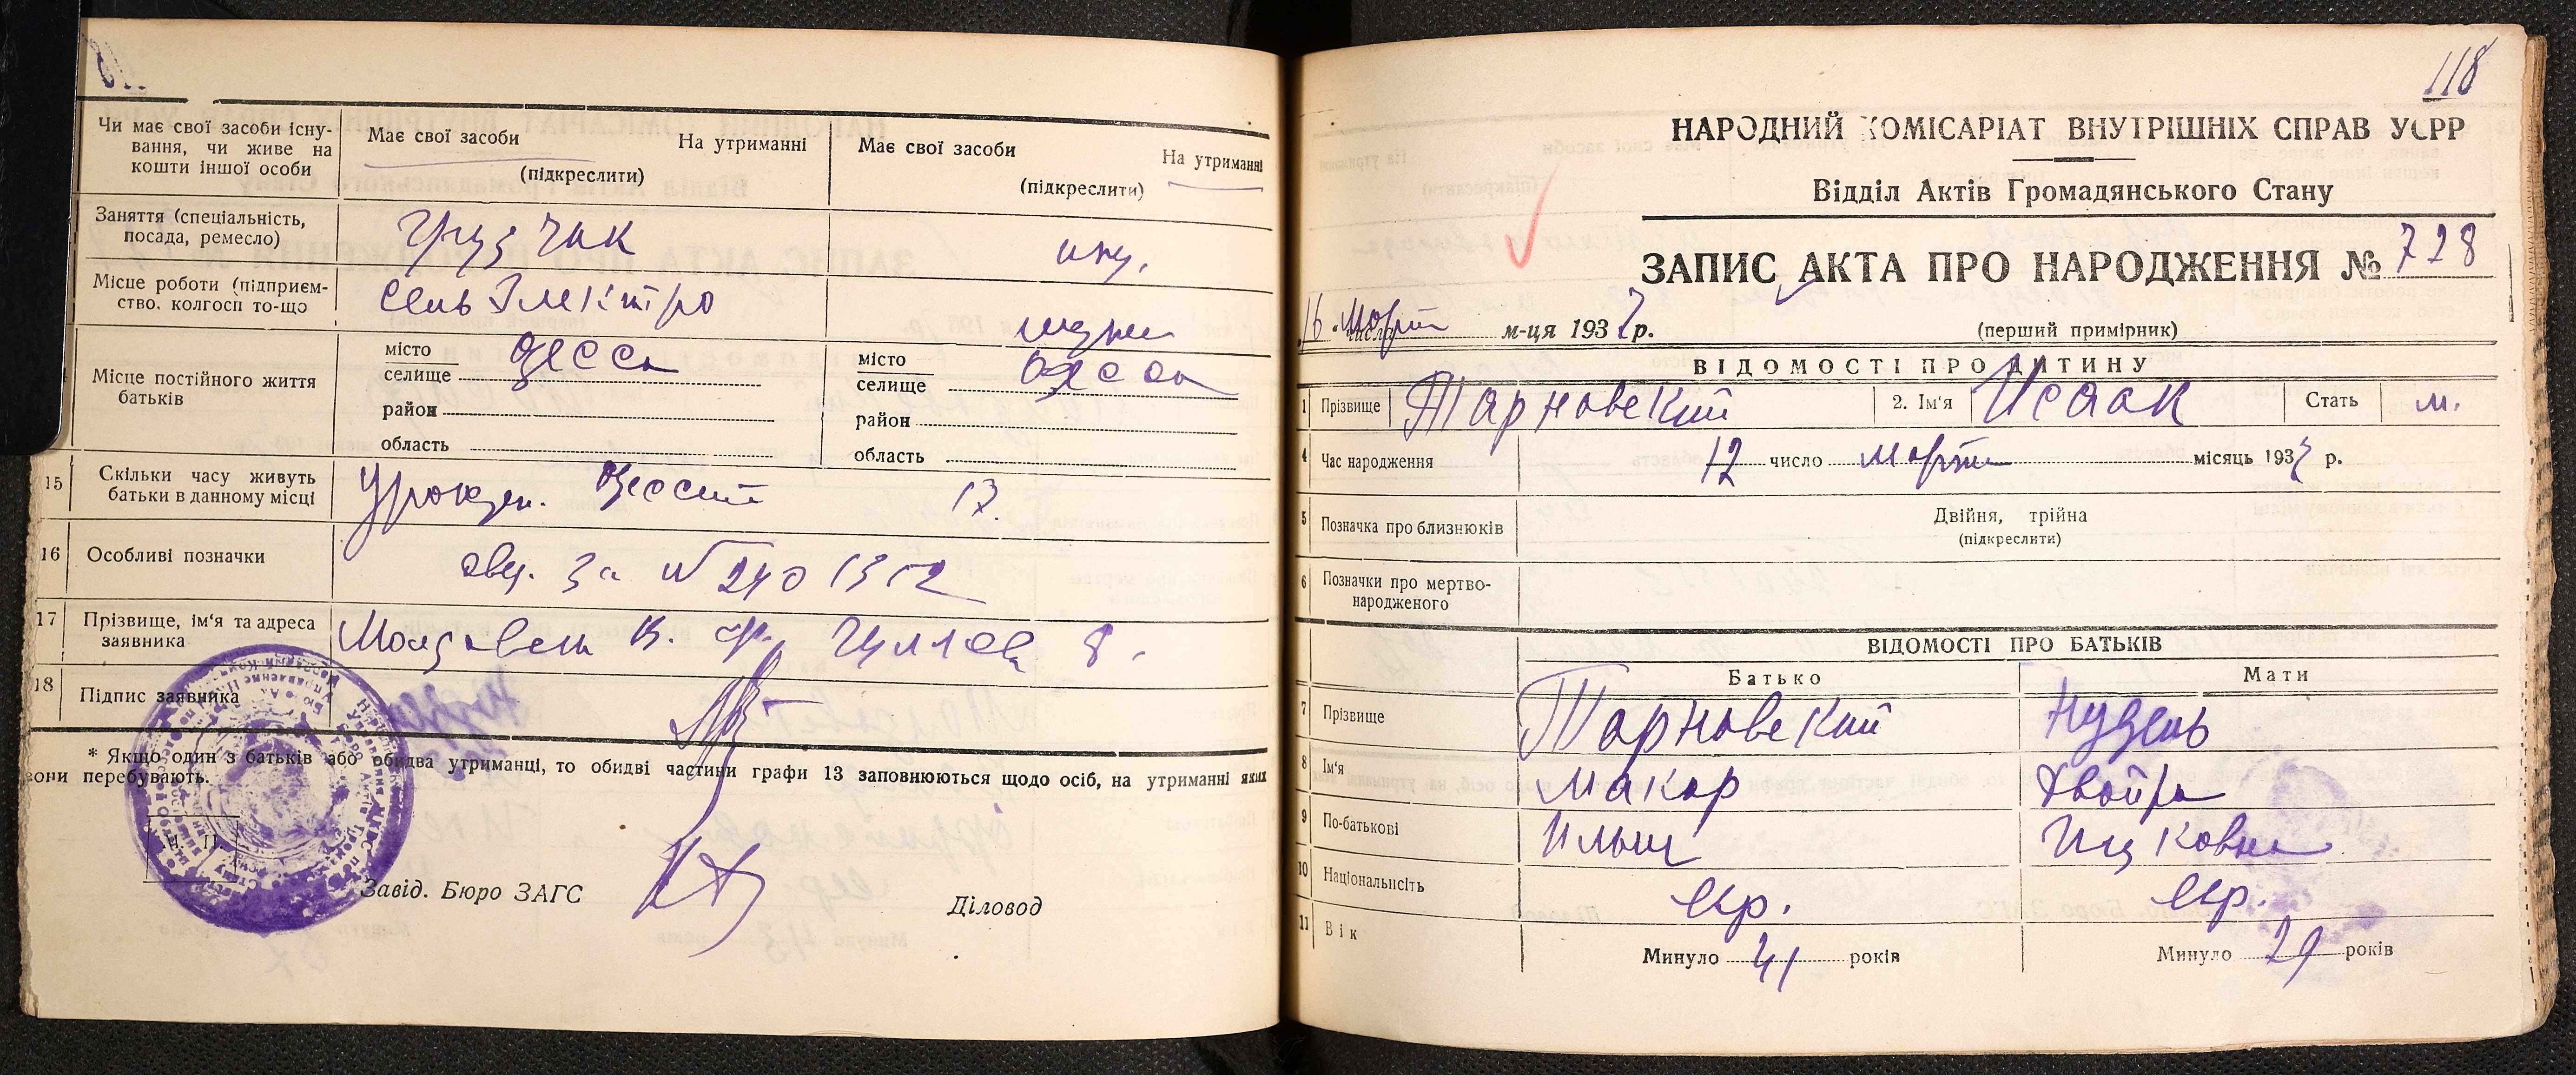 Чи має свої засоби існу-
вання, чи живе на
кошти іншої особи
Має свої засоби На утриманні
(підкреслити)
Має свої засоби На утриманні
(підкреслити)
Заняття (спеціальність,
посада, ремесло)
Грузчик
иж.
Місце роботи (підприєм-
ство, колгосп то-що
Сельэлектро
мужа
Місце постійного життя
батьків
місто Одесса
селище
район
область
місто Одесса
селище
район
область
15 Скільки часу живуть
батьки в данному місці
урожден. Одессит 17.
16 Особливі позначки
за № 240 1312
17 Прізвище, ім'я та адреса
заявника
В. 8.
18 Підпис заявника
* Якщо один з батьків або обидва утриманці, то обидві частини графи 13 заповнюються щодо осіб, на утриманні яких
вони перебувають.
М. П.
Завід. Бюро ЗАГС
Діловод
118
НАРОДНИЙ КОМІСАРІАТ ВНУТРІШНІХ СПРАВ УСРР
Відділ Актів Громадянського Стану
ЗАПИС АКТА ПРО НАРОДЖЕННЯ № 728
16 числа Марта м-ця 1937 р.
(перший примірник)
ВІДОМОСТІ ПРО ДИТИНУ
1 Прізвище Тарновский 2. Ім'я Исаак Стать м.
4 Час народження 12 число марта місяць 1937 р.
5 Позначка про близнюків
Двійня, трійня
(підкреслити)
6 Позначки про мертво-
народженого
ВІДОМОСТІ ПРО БАТЬКІВ
Батько Мати
7 Прізвище Тарновский Нудель
8 Ім'я Макар Двойра
9 По-батькові Ильич Ицковна
10 Національність евр. евр.
11 Вік
Минуло 41 років
Минуло 29 років